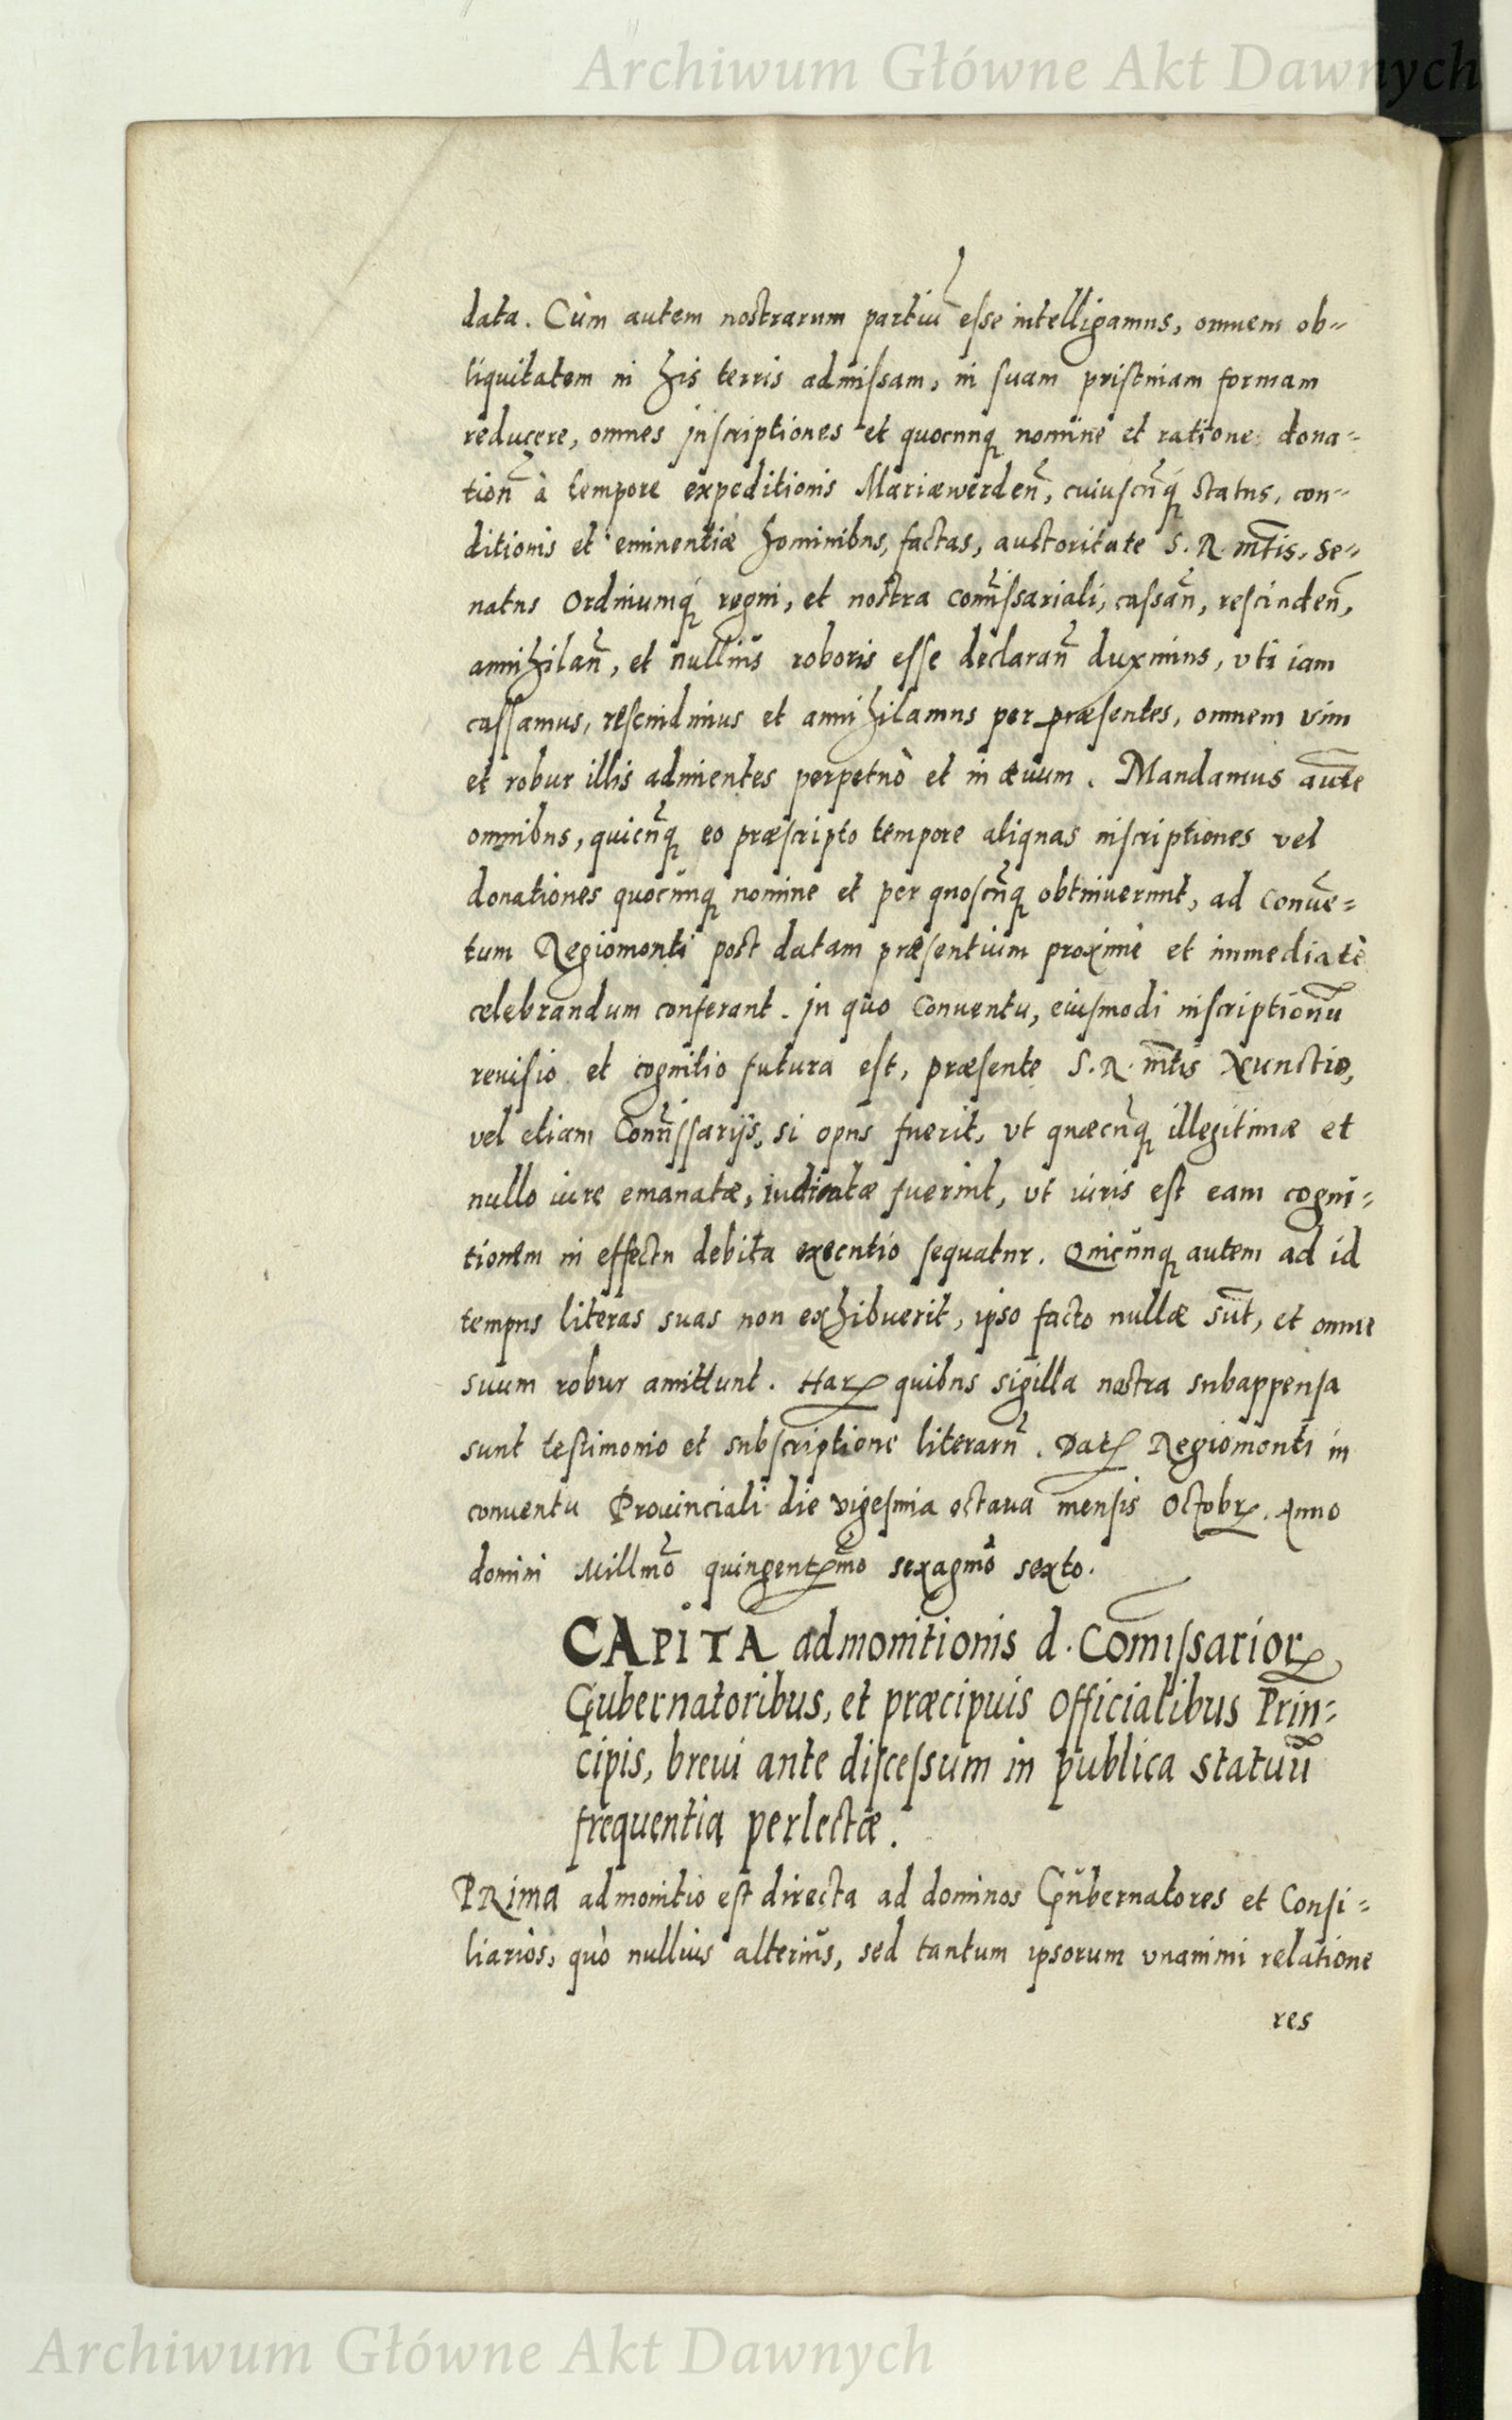 Archiwum Główne Akt Dawnych
data. Cùm autem nostrarum partiũ esse intelligamus, omnem ob=
liquitatem in his terris admissam, in suam pristinam formam
reducere, omnes inscriptiones et quocunq nomine et ratione dona=
tioñ à tempore expeditionis Mariæwerdeñ, cuiuscũq status, con=
ditionis et eminentiæ hominibus, factas, auctoritate S. R. mtis, Se=
natus Ordinumq regni, et nostra Com̃issariali, cassañ, rescindeñ,
annihilañ, et nullius roboris esse declarañ duximus, vti iam
cassamus, rescindimus et annihilamus per præsentes, omnem vim
et robur illis adimentes perpetuò et in æuum. Mandamus aũte
omnibus, quicũq eo præscripto tempore aliquas inscriptiones vel
donationes quocunq nomine et per quoscũq obtinuerunt, ad Conuẽ=
tum Regiomonti post datam præsentium proximè et immediatè
celebrandum conferant. In quo Conuentu, eiusmodi inscriptionũ
reuisio et cognitio futura est, præsente S. R. mtis Nunctio,
vel etiam Com̃issarijs, si opus fuerit, vt quæcũq illegitimæ et
nullo iure emanatæ, iudicatæ fuerint, vt iuris est eam cogni=
tionem in effectu debita executio sequatur. Quicunq autem ad id
tempus literas suas non exhibuerit, ipso facto nullæ sũt, et omne
suum robur amittunt. Harꝝ quibus sigilla nostra subappensa
sunt testimonio et subscriptione literarũ. Datꝭ Regiomonti in
conuentu Prouinciali die vigesima octaua mensis Octobrꝭ. Anno
domini Millmõ quingentꝭmo sexagmõ sexto.
CAPITA admonitionis d. Comissariorꝝ
Gubernatoribus, et præcipuis officialibus Prin=
cipis, breui ante discessum in publica statuũ
frequentia perlectæ.
PRima admonitio est directa ad dominos Gubernatores et Consi=
liarios, quò nullius alterius, sed tantum ipsorum vnanimi relatione
res
Archiwum Główne Akt Dawnych